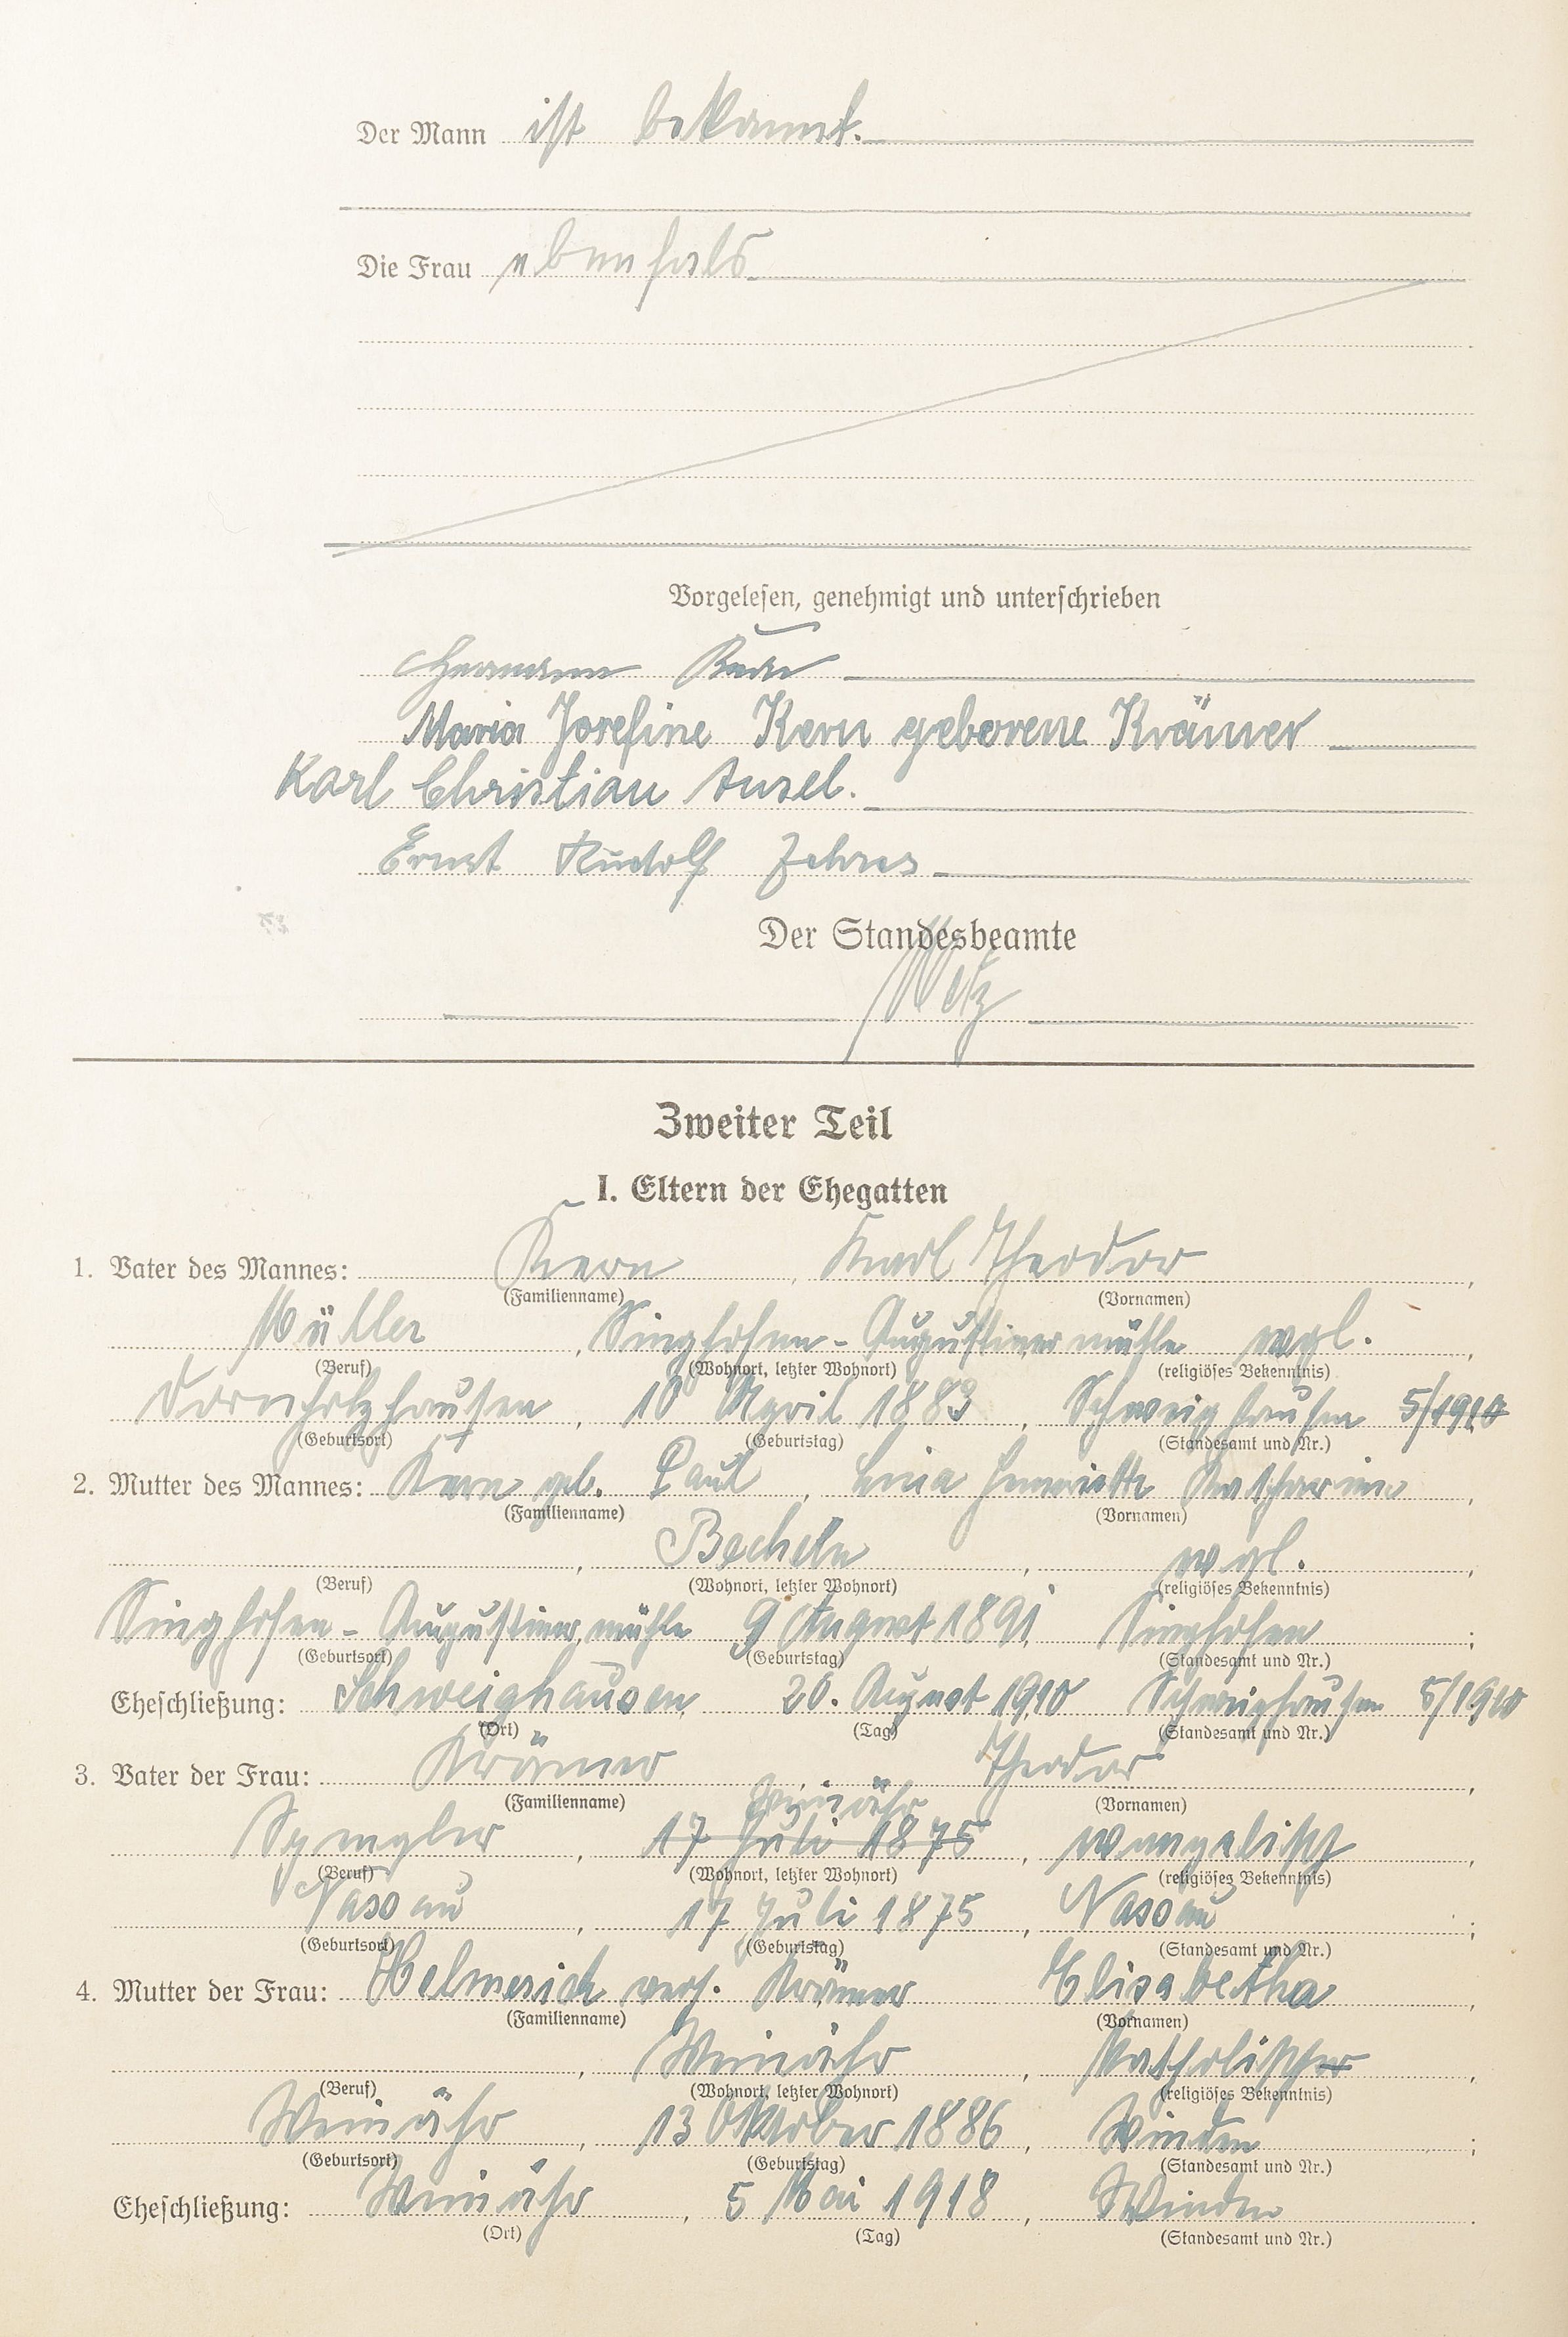 Der Mann ist bekannt.
Die Frau ebenfals
Vorgelesen, genehmigt und unterschrieben
Hermann Kern
Maria Josefine Kern geborene Krämer
Karl Christian Ansel.
Ernst Rudolf Zehres
Der Standesbeamte
Metz
Zweiter Teil
I. Eltern der Ehegatten
1. Vater des Mannes: Kern, Karl Theodor,
(Familienname) (Vornamen)
Müller, Singhofen-Augustinermühle evgl.,
(Beruf) (Wohnort, letzter Wohnort) (religiöses Bekenntnis)
Dornholzhausen, 10 April 1883, Schweighausen 5/1910
(Geburtsort) (Geburtstag) (Standesamt und Nr.)
2. Mutter des Mannes: Kern geb. Paul, Lina Henriette Katharine,
(Familienname) (Vornamen)
, Becheln, evgl.,
(Beruf) (Wohnort, letzter Wohnort) (religiöses Bekenntnis)
Singhofen-Augustinermühle 9 August 1891 Singhofen;
(Geburtsort) (Geburtstag) (Standesamt und Nr.)
Eheschließung: Schweighausen 20. August 1910 Schweighausen 5/1910
(Ort) (Tag) (Standesamt und Nr.)
3. Vater der Frau: Krämer, Theodor,
(Familienname) (Vornamen)
Weinähr
Spengler, 17 Juli 1875, evangelisch,
(Beruf) (Wohnort, letzter Wohnort) (religiöses Bekenntnis)
Nassau, 17 Juli 1875, Nassau;
(Geburtsort) (Geburtstag) (Standesamt und Nr.)
4. Mutter der Frau: Helmerich verh. Krämer Elisabetha,
(Familienname) (Vornamen)
, Weinähr, katholischer,
(Beruf) (Wohnort, letzter Wohnort) (religiöses Bekenntnis)
Weinähr, 13 Oktober 1886, Winden;
(Geburtsort) (Geburtstag) (Standesamt und Nr.)
Eheschließung: Weinähr, 5 Mai 1918, Winden.
(Ort) (Tag) (Standesamt und Nr.)